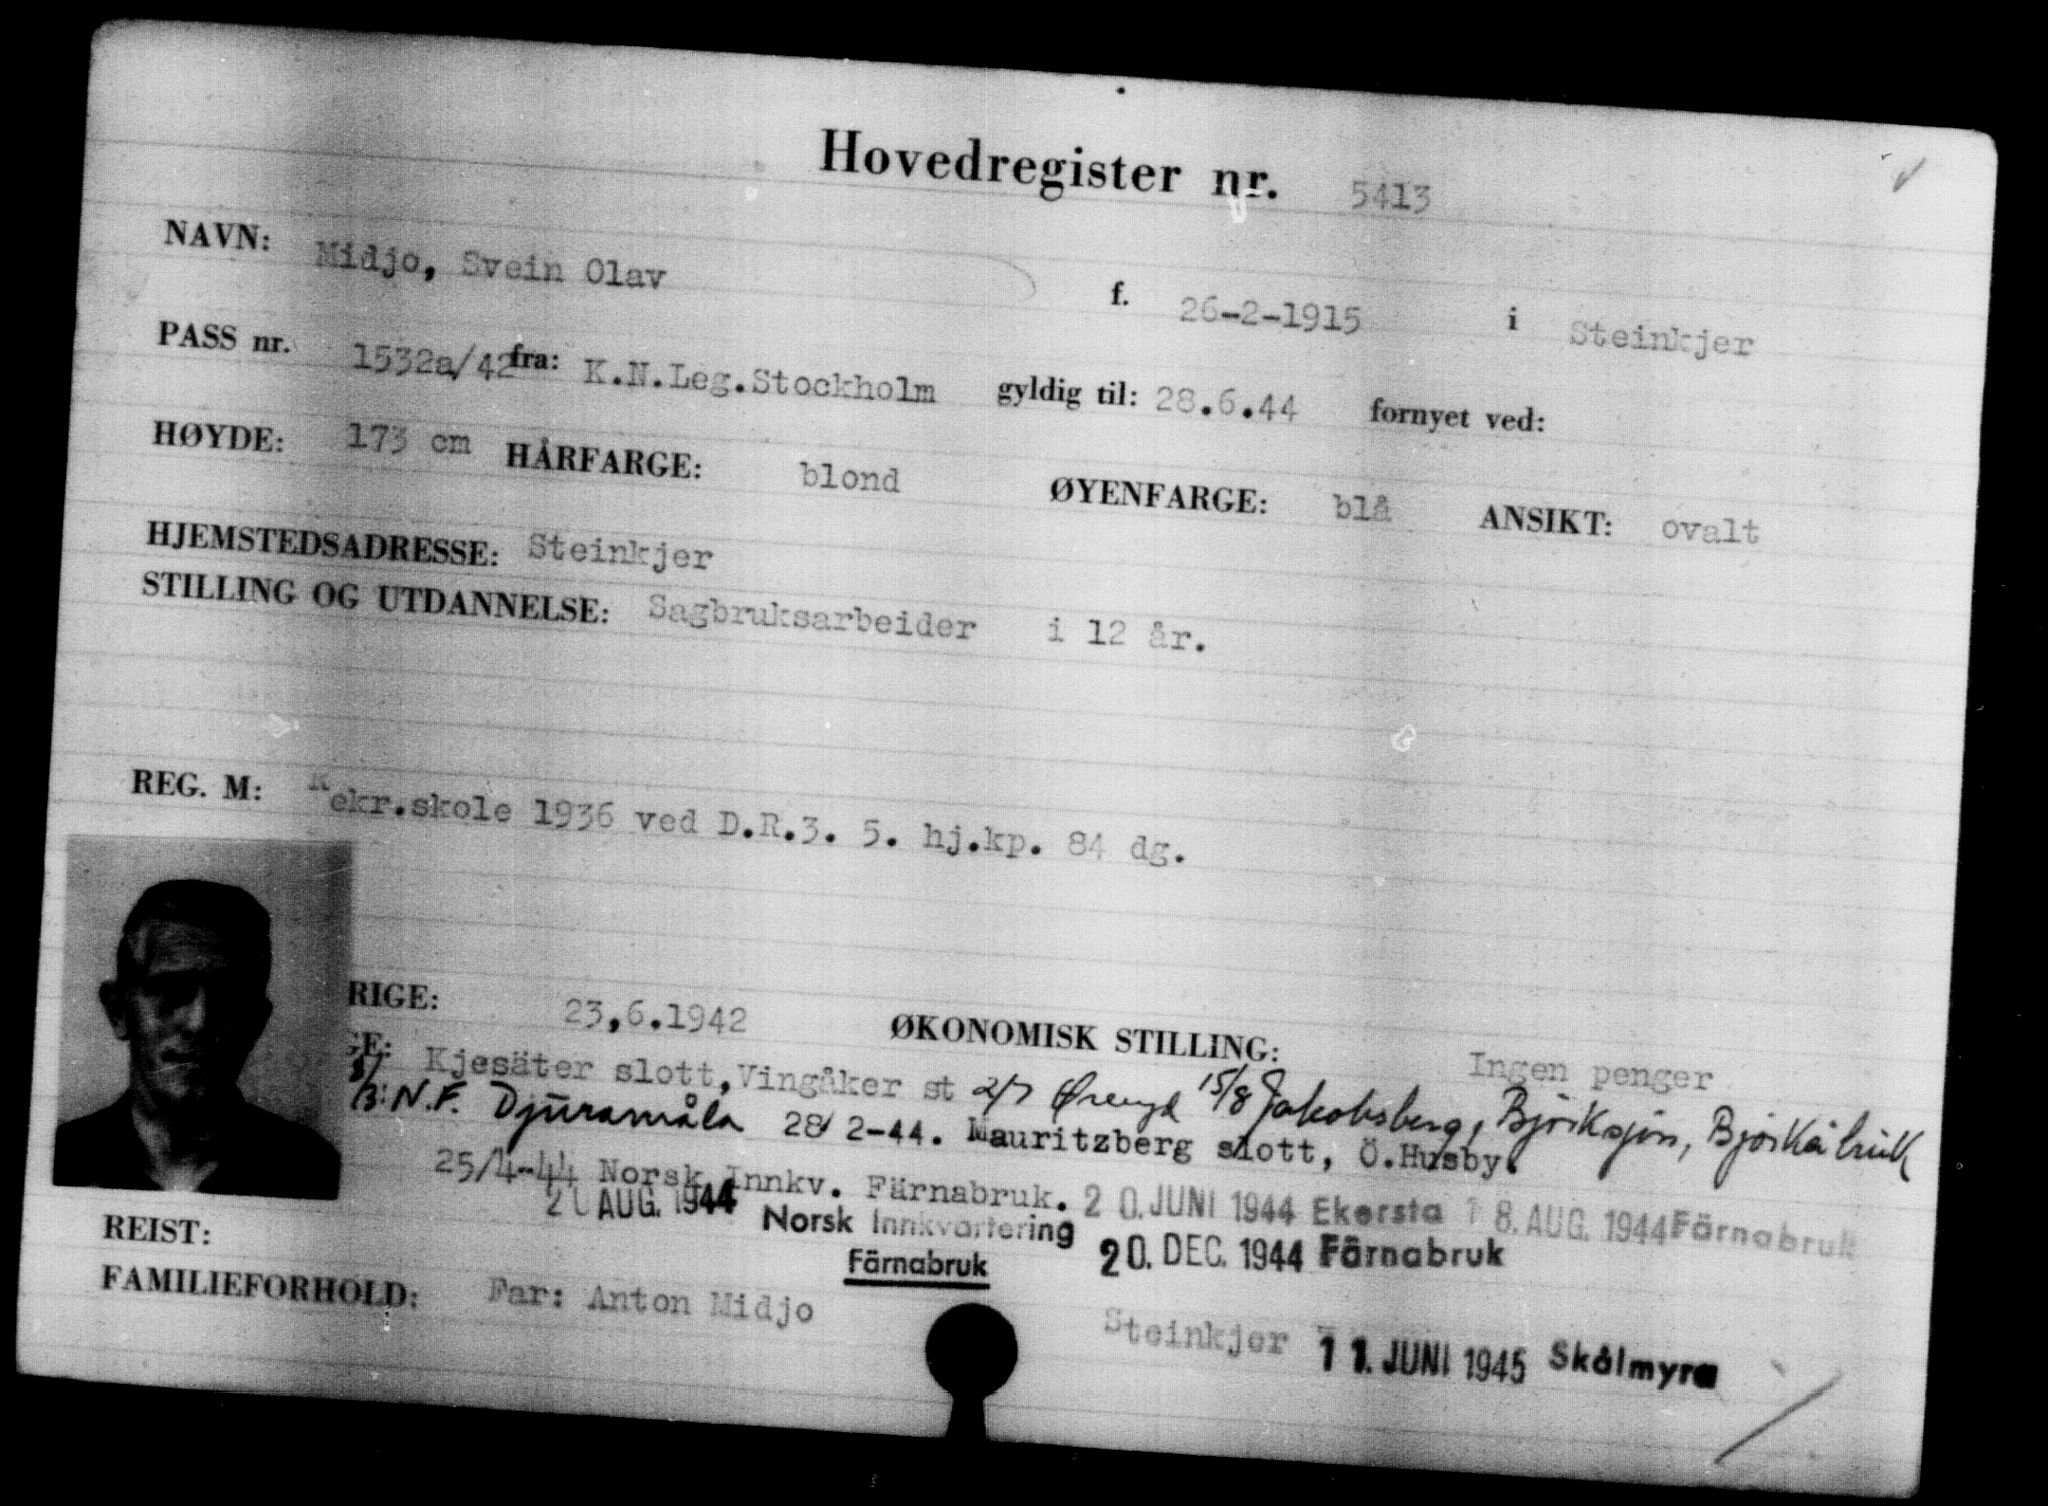 Hovedregister nr. 5413
NAVN: Midjo, Svein Olav f. 26-2-1915 i Steinkjer
PASS nr. 1532a/42 fra: K.N.Leg.Stockholm gyldig til: 28.6.44 fornyet ved:
HØYDE: 173 cm HÅRFARGE: blond ØYENFARGE: blå ANSIKT: ovalt
HJEMSTEDSADRESSE: Steinkjer
STILLING OG UTDANNELSE: Sagbruksarbeider i 12 år.
REG. M: Rekr.skole 1936 ved D.R.3. 5. hj.kp. 84 dg.
RIGE: 23,6.1942 ØKONOMISK STILLING: Ingen penger
GE: Kjesäter slott,Vingåker st 2/7 15/8 Jakobsberg,
N.F. Djuramåla 28/2-44. Mauritzberg slott, Ö.Husby.
25/4-44 Norsk Innkv. Färnabruk. 20. JUNI 1944 Ekersta 18. AUG. 1944 Färnabruk
AUG. 1944 Norsk Innkvartering
20. DEC. 1944 Färnabruk
REIST: Färnabruk
FAMILIEFORHOLD: Far: Anton Midjo Steinkjer 11. JUNI 1945 Skålmyra